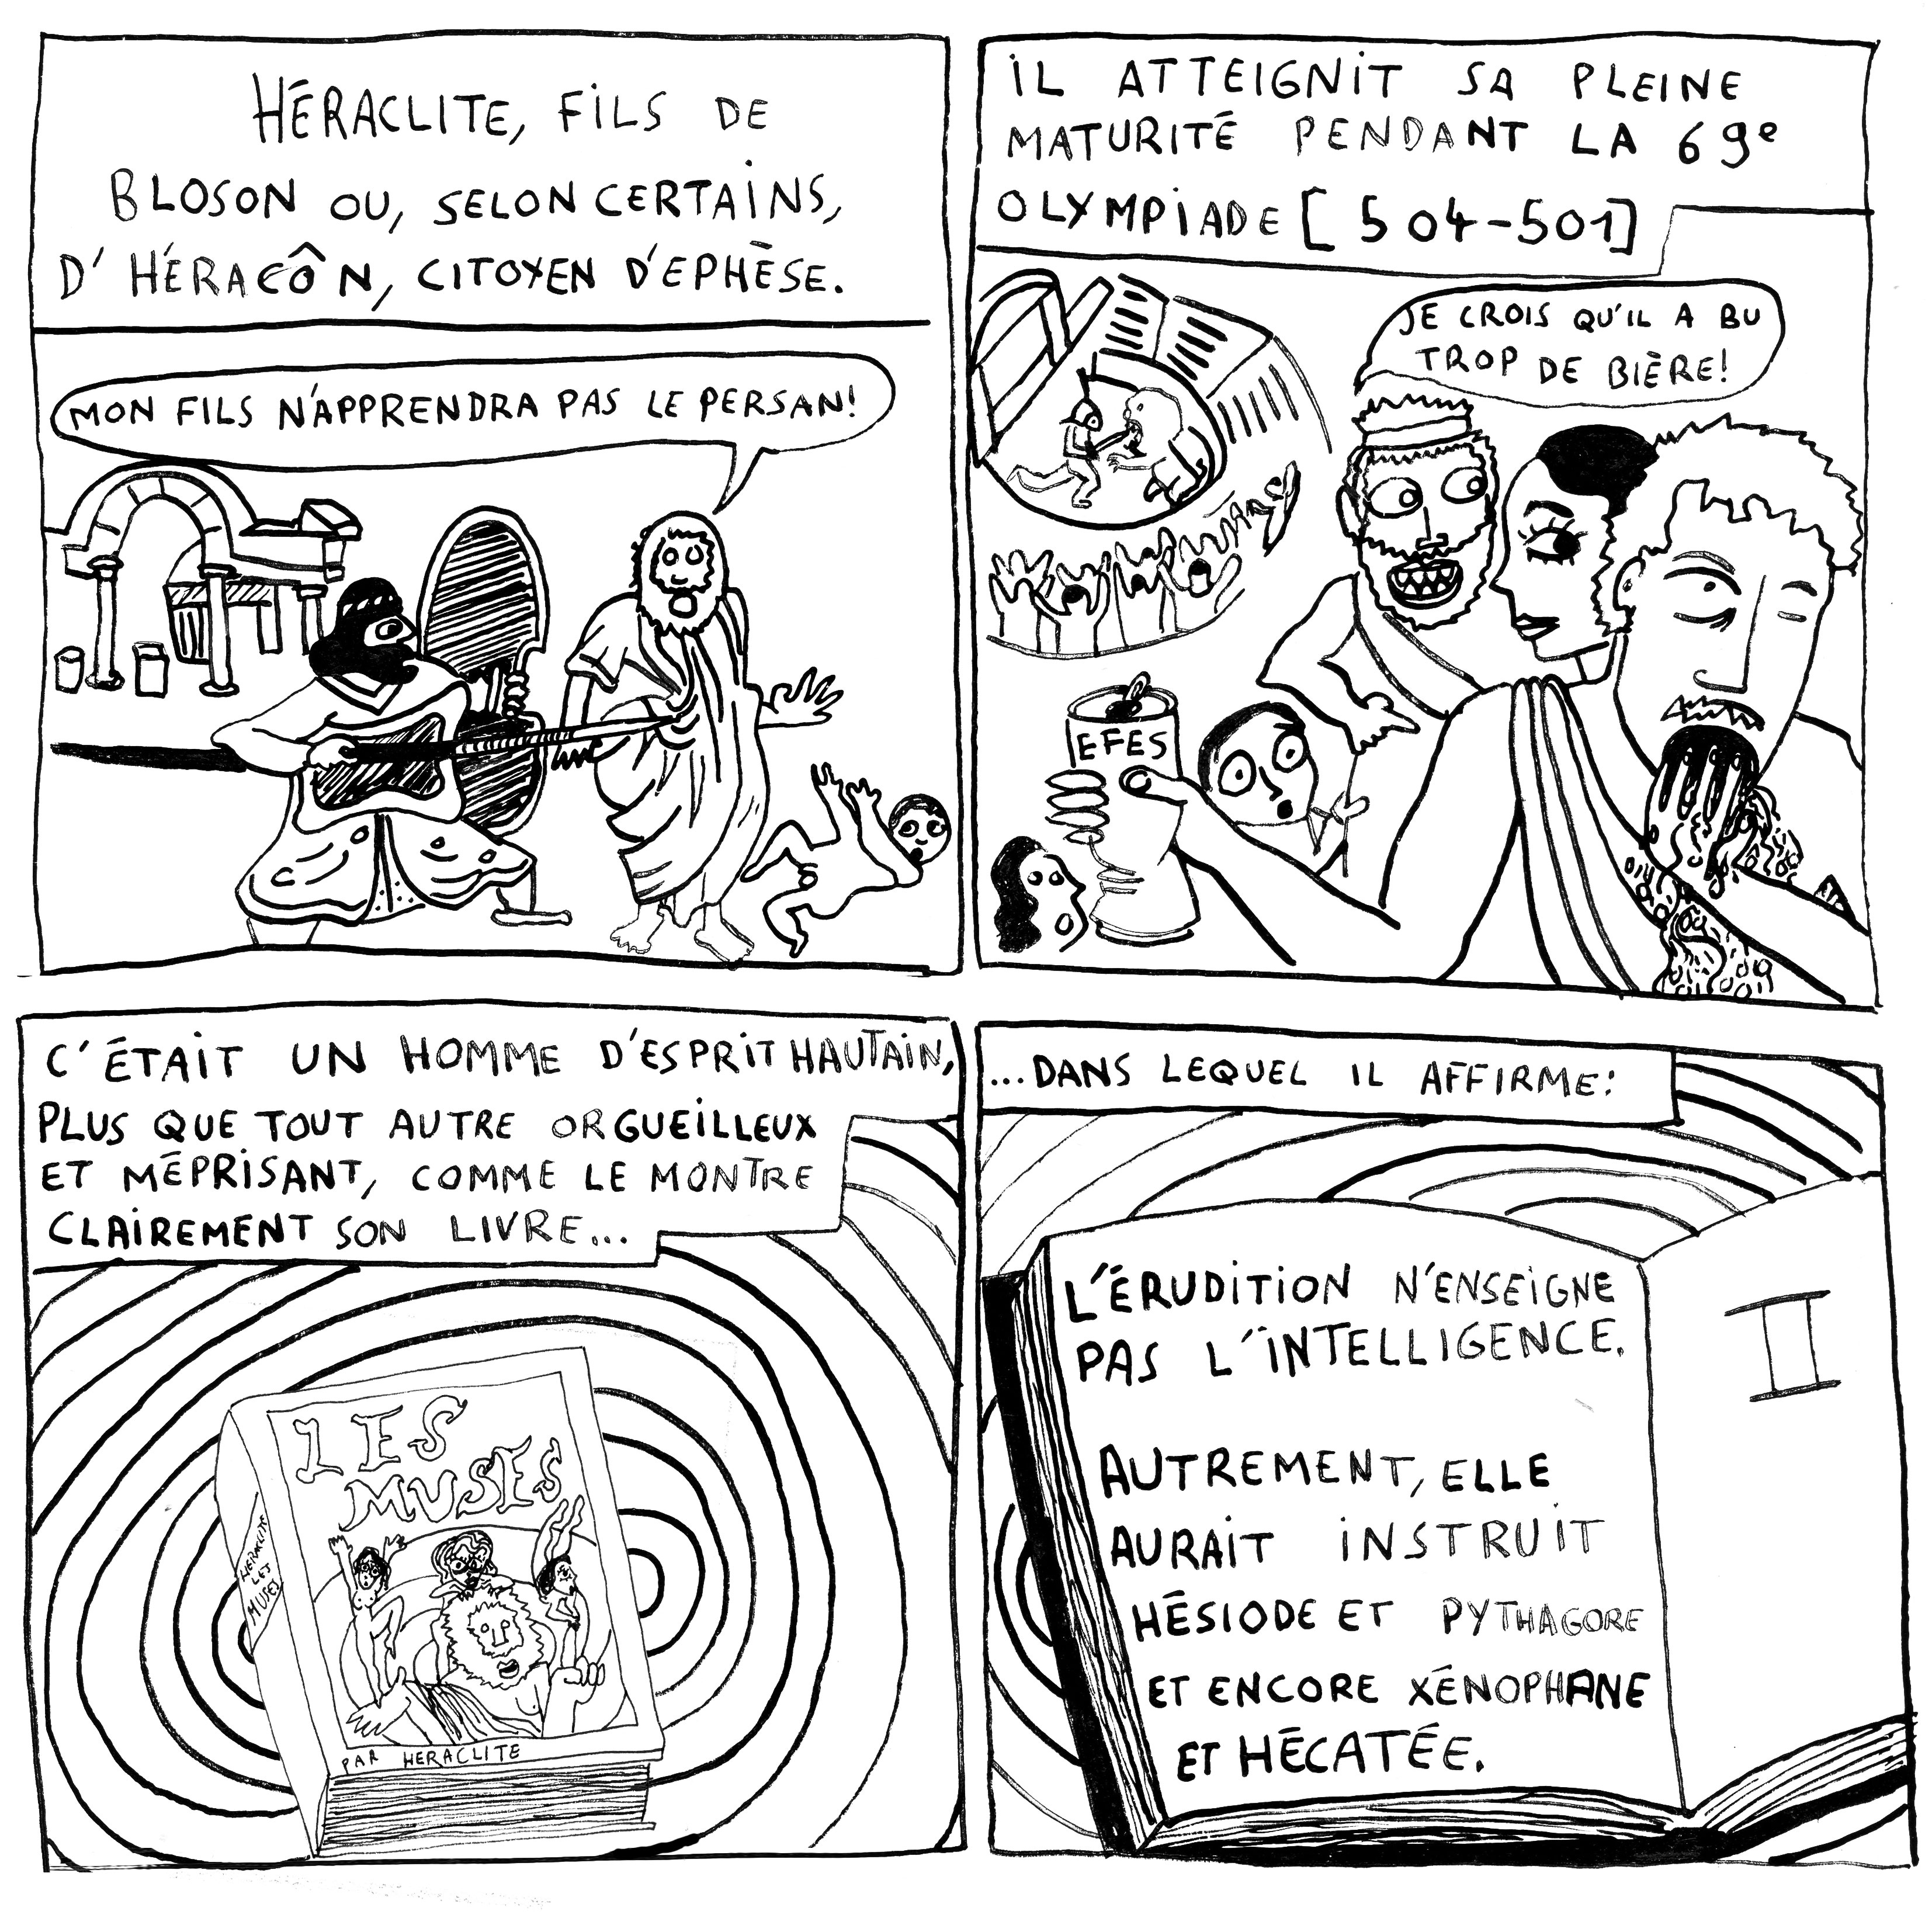 HÉRACLITE, FILS DE
BLOSON OU, SELON CERTAINS,
D'HÉRACÔN, CITOYEN D'EPHÈSE.
MON FILS N'APPRENDRA PAS LE PERSAN!
IL ATTEIGNIT SA PLEINE
MATURITÉ PENDANT LA 69e
OLYMPIADE [504-501]
JE CROIS QU'IL A BU
TROP DE BIÈRE!
EFES
C'ÉTAIT UN HOMME D'ESPRIT HAUTAIN,
PLUS QUE TOUT AUTRE ORGUEILLEUX
ET MÉPRISANT, COMME LE MONTRE
CLAIREMENT SON LIVRE...
LES
MUSES
HERACLITE
LES
MUSES
PAR HERACLITE
...DANS LEQUEL IL AFFIRME:
L'ÉRUDITION N'ENSEIGNE
PAS L'INTELLIGENCE.
AUTREMENT, ELLE
AURAIT INSTRUIT
HÉSIODE ET PYTHAGORE
ET ENCORE XÉNOPHANE
ET HÉCATÉE.
II